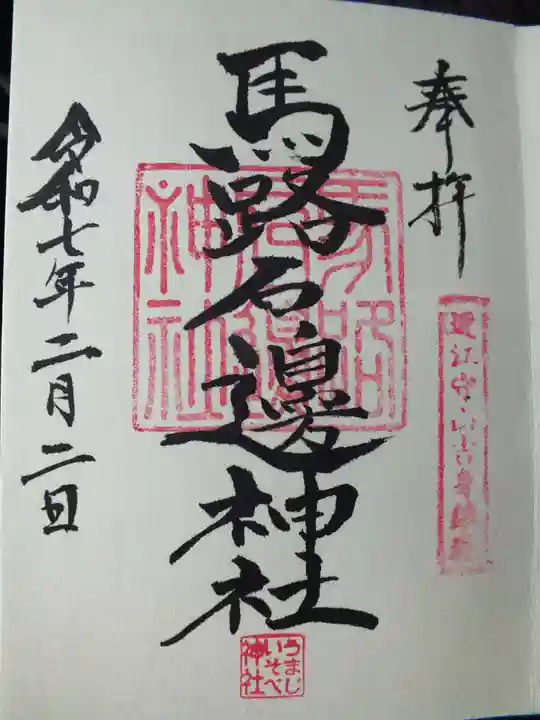 奉拝
馬路石邊神社
馬路石邊神社
うまじ
いそべ
神社
令和七年二月二日